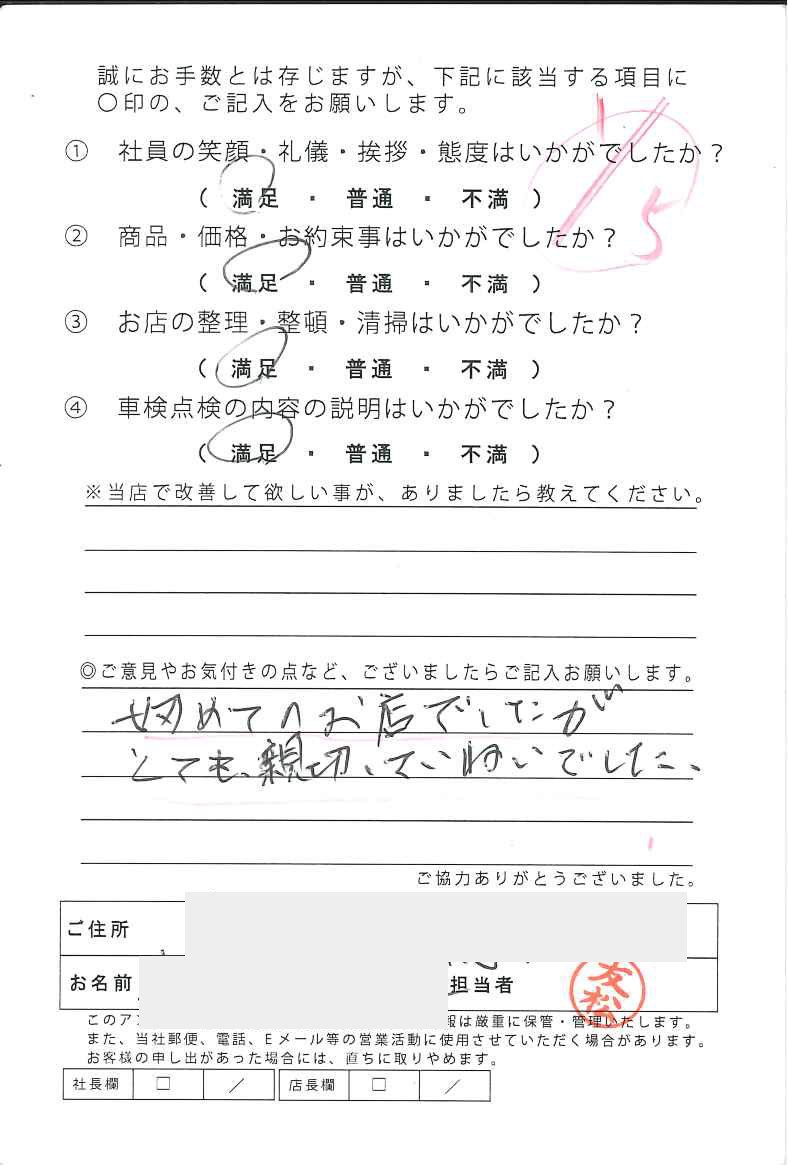 誠にお手数とは存じますが、下記に該当する項目に
〇印の、ご記入をお願いします。
1/5
① 社員の笑顔・礼儀・挨拶・態度はいかがでしたか？
（ 満足 ・ 普通 ・ 不満 ）
② 商品・価格・お約束事はいかがでしたか？
（ 満足 ・ 普通 ・ 不満 ）
③ お店の整理・整頓・清掃はいかがでしたか？
（ 満足 ・ 普通 ・ 不満 ）
④ 車検点検の内容の説明はいかがでしたか？
（ 満足 ・ 普通 ・ 不満 ）
※当店で改善して欲しい事が、ありましたら教えてください。
◎ご意見やお気付きの点など、ございましたらご記入お願いします。
初めてのお店でしたが
とても、親切、ていねいでした、
ご協力ありがとうございました。
ご住所
お名前 担当者 友松
このアン 報は厳重に保管・管理いたします。
また、当社郵便、電話、Eメール等の営業活動に使用させていただく場合があります。
お客様の申し出があった場合には、直ちに取りやめます。
社長欄 □ ／ 店長欄 □ ／